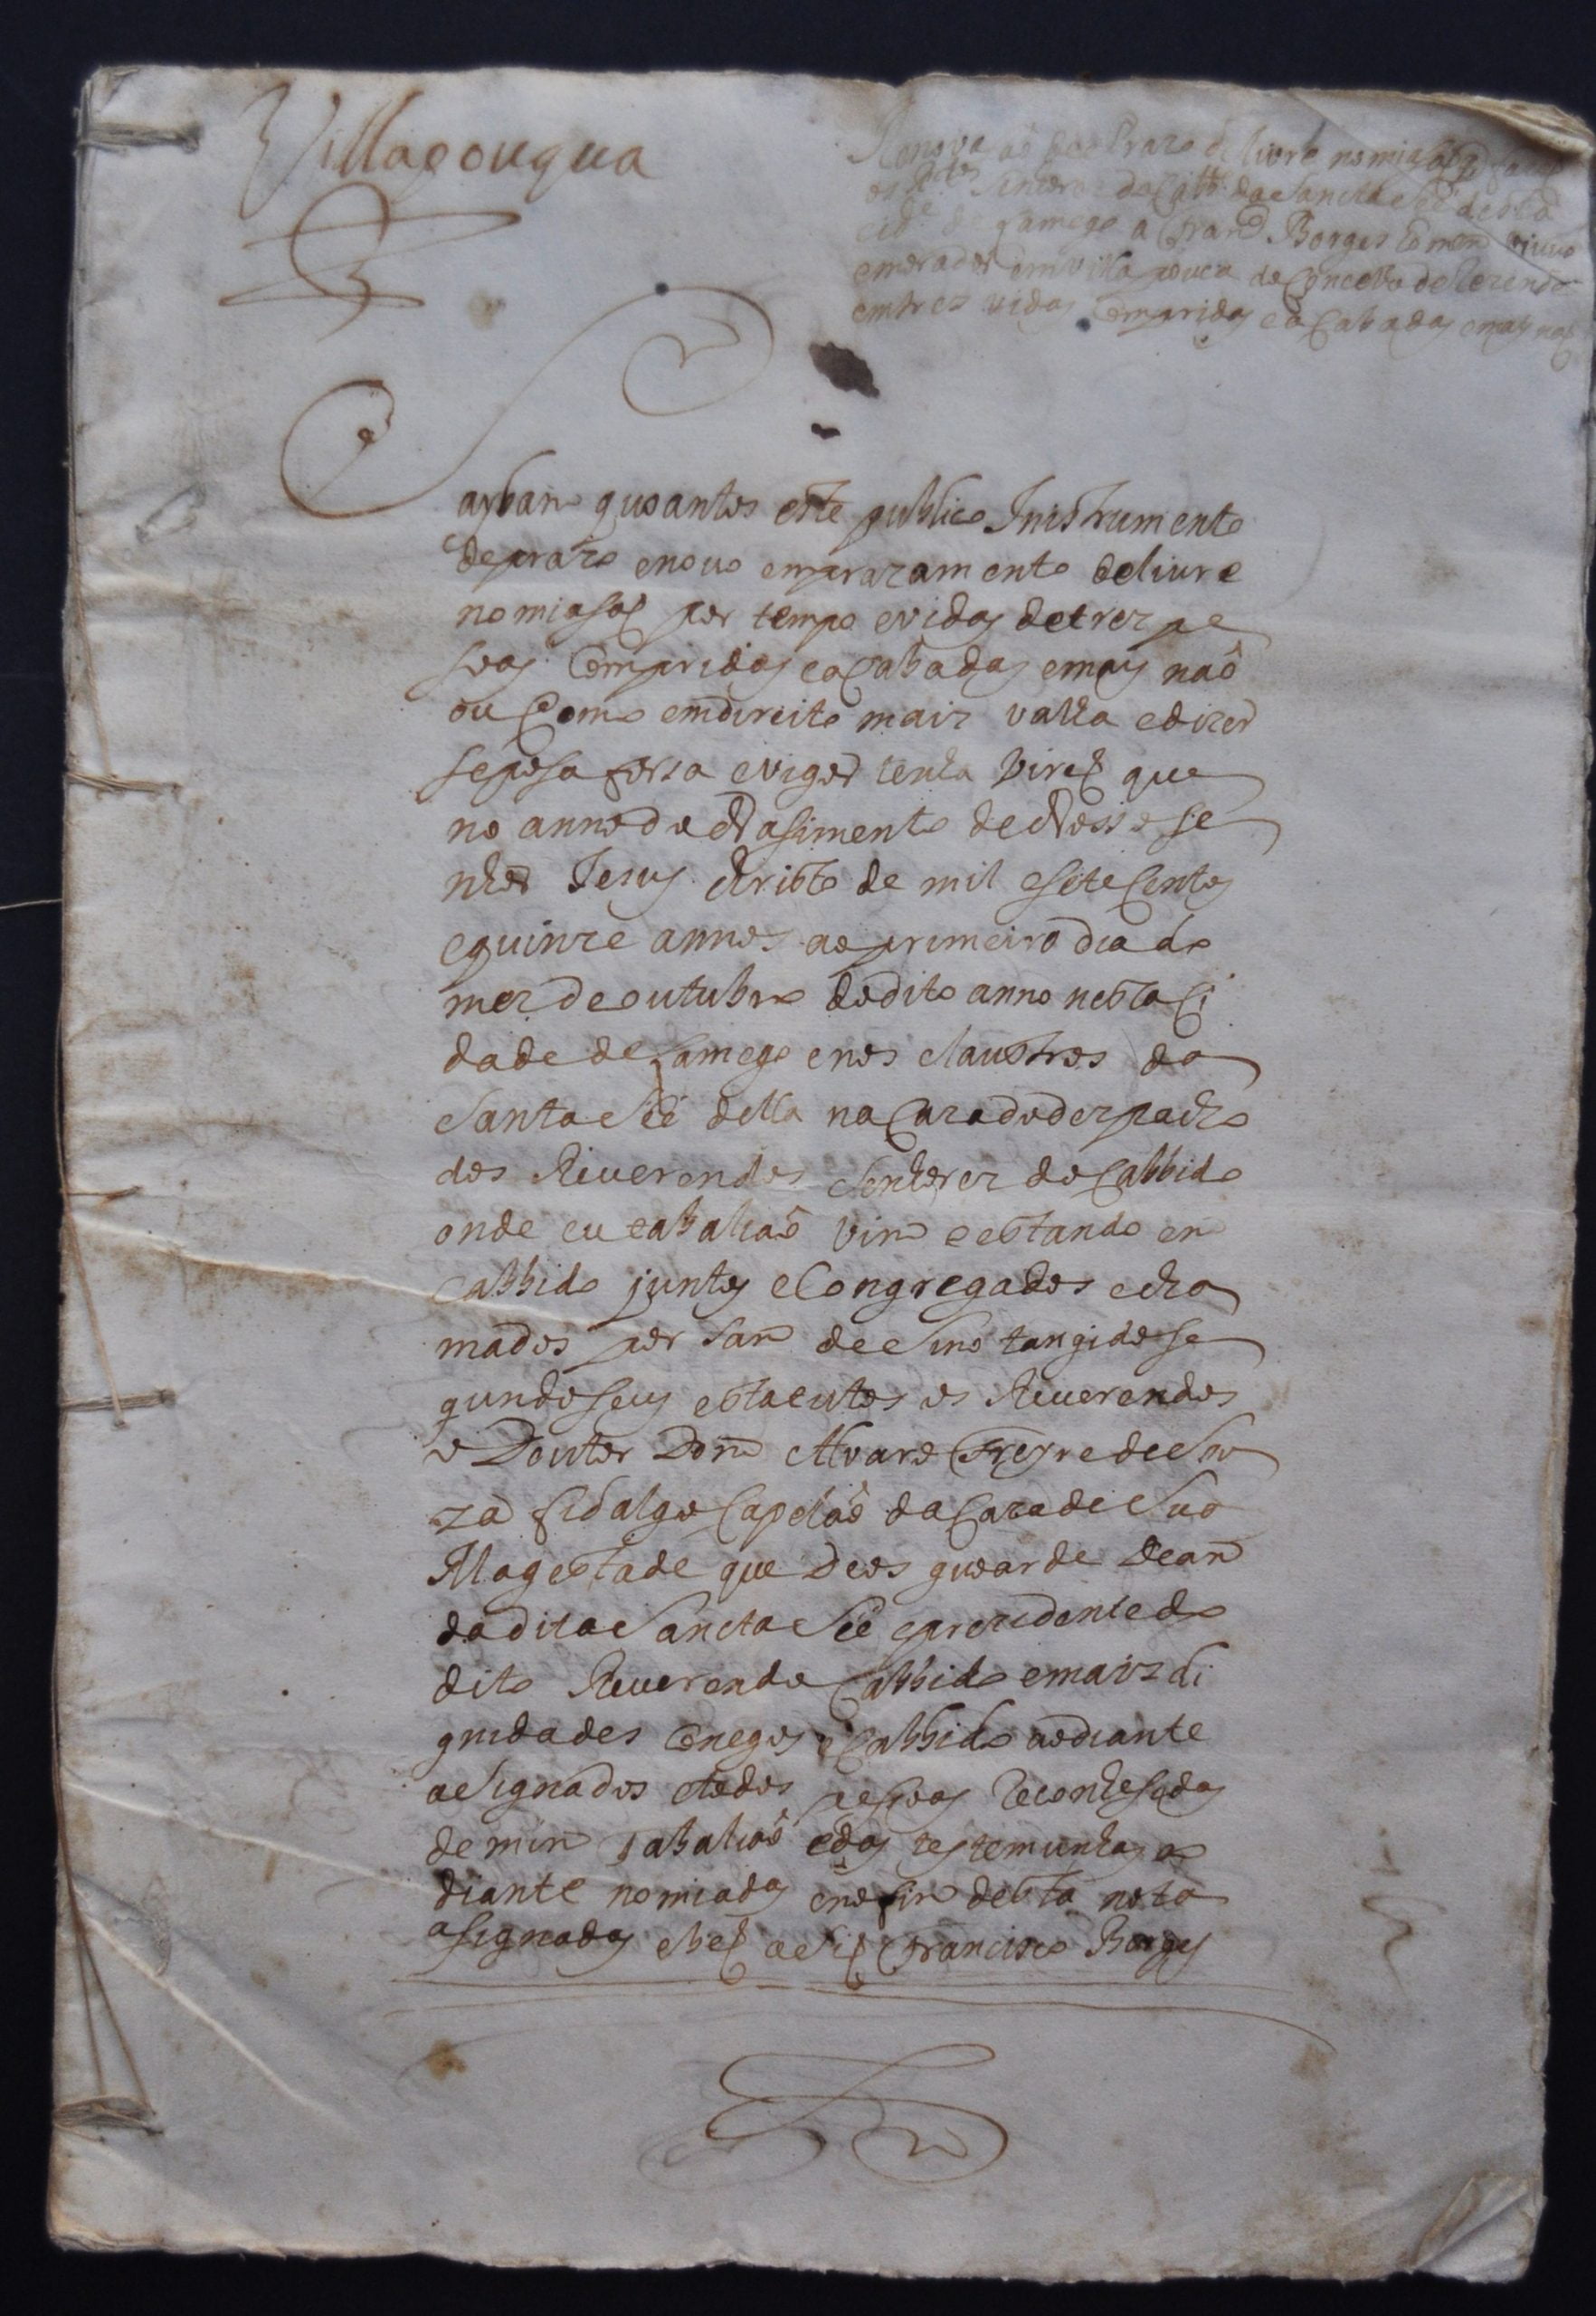 Villapouqua
Renovasaõ de Prazo de livre nomiasaõ q̃ fazem
os R.dos Senhores do Cabb.o da Sancta See desta
cid.e de Lamego a Fran.co Borges homem viuvo
e morador em villa pouca do Concelho de Rezende
em trez vidas Compridas e aCabadas e mais naõ
Saybam quoantos este publico Instrumento
de prazo e novo emprazamento de livre
nomiasaõ por tempo e vidas de trez pe
soas Compridas e aCabadas e mais naõ
ou Como em direito mais valha e dizer
se posa forsa e vigor tenha Virem que
no anno do Nasimento de Nosso se
nhor Jesus christo de mil e sete Centos
e quinze annos ao primeiro dia do
mez de outubro do dito anno nesta Ci
dade de Lamego e nos claustros da
Santa See della na Caza do despacho
dos Reverendos Senhores do Cabbido
onde eu tabaliaõ vim e estando em
Cabbido juntos e Congregados e cha
mados por sam de Sino tangido se
gundo seus estatutos os Reverendos
o Doutor Dom Alvaro Freyre de Sou
za fidalgo Capelaõ da Caza de Sua
Magestade que Deos guoarde Deam
da dita Sancta See e prezidente do
dito Reverendo Cabbido e mais di
gnidades Conegos e Cabbido ao diante
asignados e todos pesoas Reconhesidas
de mim tabaliaõ e das testemunhas ao
diante nomiadas e no fim desta nota
asignadas e bem asim Francisco Borges